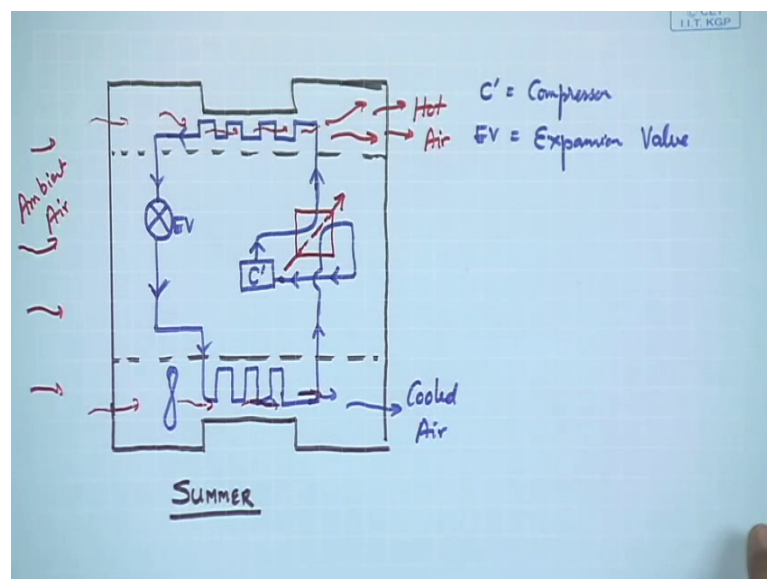 © CET
I.I.T. KGP
C' = Compressor
EV = Expansion Valve
Hot
Air
Ambient
Air
EV
C'
Cooled
Air
SUMMER